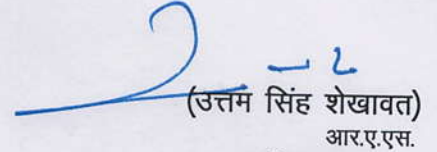 (उत्तम सिंह शेखावत)
आर.ए.एस.